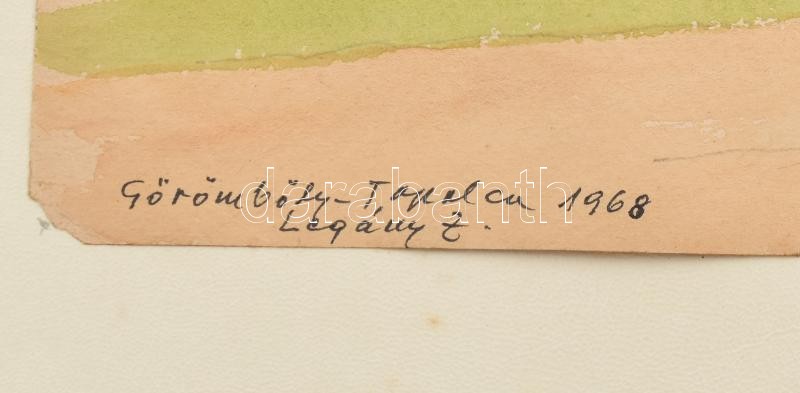 Görömböly-Tapolca 1968
Legány Z.
darabanth